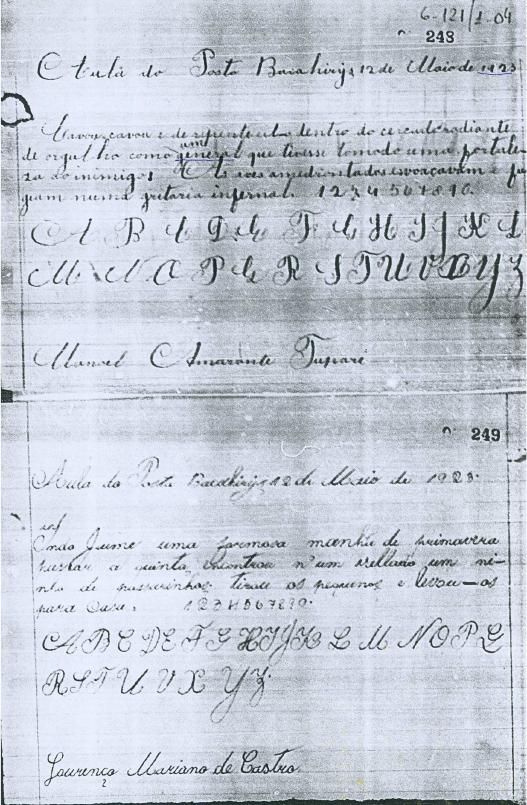 6-121/I-04
248
Aula do Posto Bacahirÿs 12 de Maio de 1923
Cavou, cavou e de repente eil-o dentro do cercado radiante
de orgulho como um general que tivesse tomado uma fortale-
za do inimigo; As aves amedrontadas esvoaçavam e fu
giam numa gritaria infernal. 1 2 3 4 5 6 7 8 9 0.
A B C D E F G H I J K L
M N O P Q R S T U V X Y Z
Manoel Amarante Tupari
249
Aula do Posto Bacahirÿs 12 de Maio de 1923.
Indo Jaime uma formosa manhã de primavera
passar a quinta, encontrou n'um vallado um ni-
nho de passarinhos, tirou os pequenos e levou-os
para casa. 1 2 3 4 5 6 7 8 9 0.
A B C D E F G H I J K L M N O P Q
R S T U V X Y Z.
Lourenço Mariano de Castro